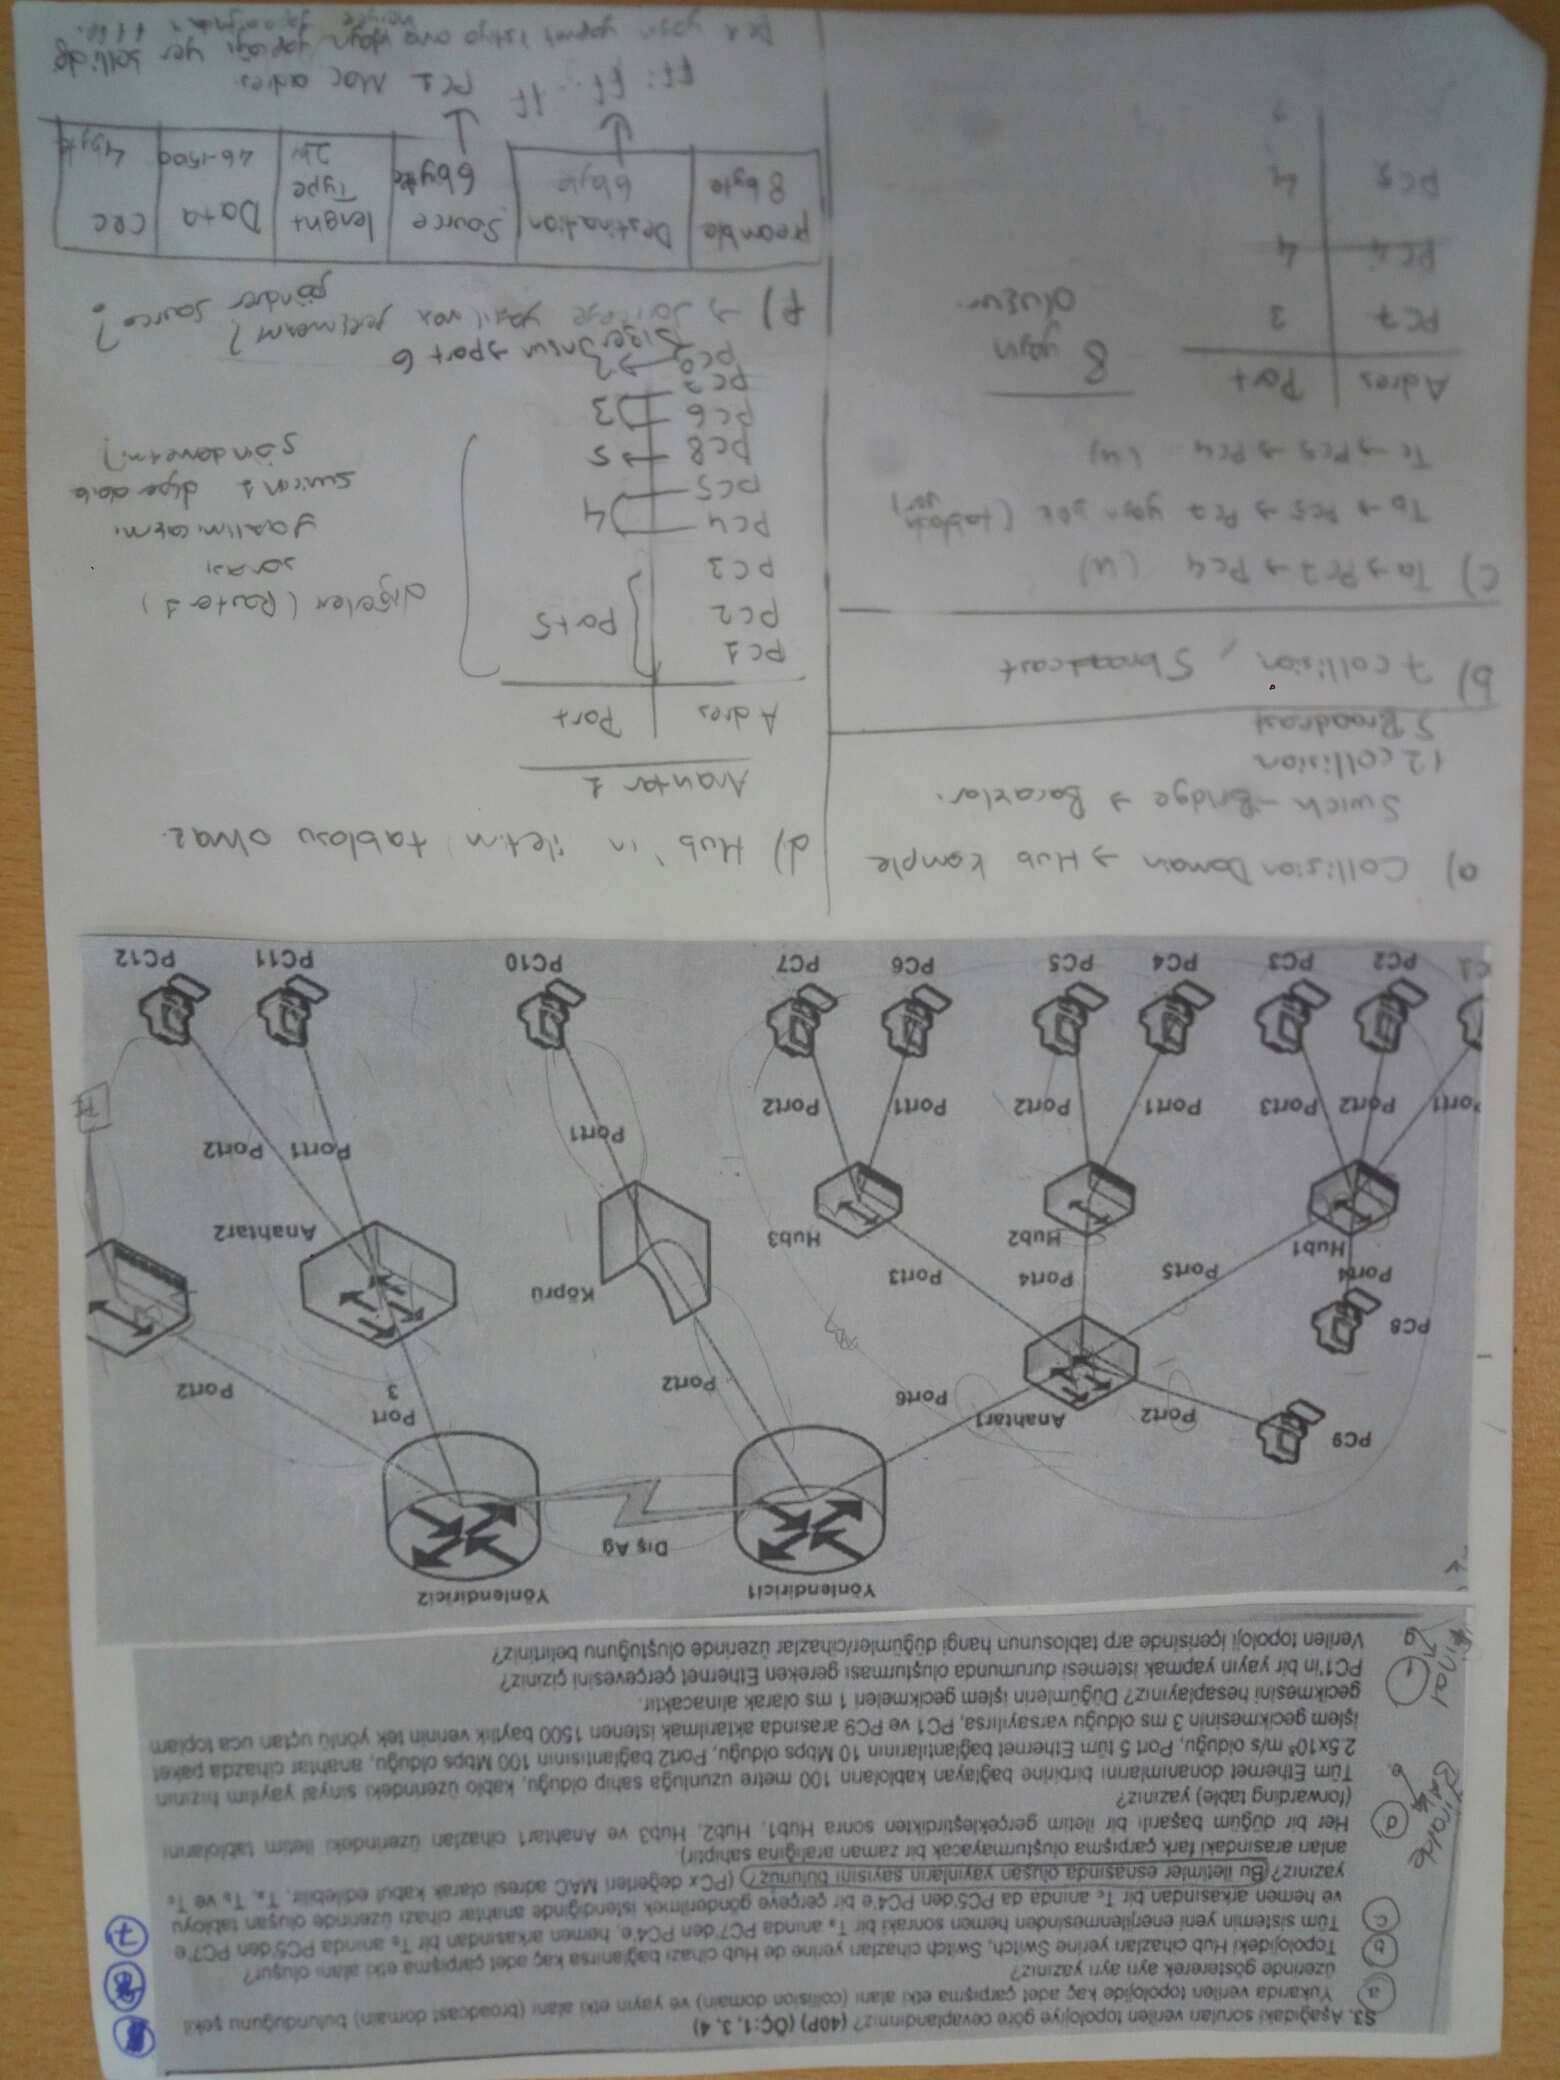 S3. Aşağıdaki soruları verilen topolojiye göre cevaplandırınız? (40P) (ÖÇ:1, 3, 4)
a Yukarıda verilen topolojide kaç adet çarpışma etki alanı (collision domain) ve yayın etki alanı (broadcast domain) bulunduğunu şekil
üzerinde göstererek ayrı ayrı yazınız?
b Topolojideki Hub cihazları yerine Switch, Switch cihazları yerine de Hub cihazı bağlanırsa kaç adet çarpışma etki alanı oluşur?
c. Tüm sistemin yeni enerjilenmesinden hemen sonraki bir Ta anında PC7'den PC4'e, hemen arkasından bir Tb anında PC5'den PC7'e
ve hemen arkasından bir Tc anında da PC5'den PC4'e bir çerçeve gönderilmek istendiğinde anahtar cihazı üzerinde oluşan tabloyu
yazınız? (Bu iletimler esnasında oluşan yayınların sayısını bulunuz?) (PCx değerleri MAC adresi olarak kabul edilebilir, Ta, Tb ve Tc
anları arasındaki fark çarpışma oluşturmayacak bir zaman aralığına sahiptir).
d Her bir düğüm başarılı bir iletim gerçekleştirdikten sonra Hub1, Hub2, Hub3 ve Anahtar1 cihazları üzerindeki iletim tablolarını
(forwarding table) yazınız?
e. Tüm Ethernet donanımlarını birbirine bağlayan kabloların 100 metre uzunluğa sahip olduğu, kablo üzerindeki sinyal yayılım hızının
2.5x10⁸ m/s olduğu, Port 5 tüm Ethernet bağlantılarının 10 Mbps olduğu, Port2 bağlantısının 100 Mbps olduğu, anahtar cihazda paket
işlem gecikmesinin 3 ms olduğu varsayılırsa, PC1 ve PC9 arasında aktarılmak istenen 1500 baytlık verinin tek yönlü uçtan uca toplam
gecikmesini hesaplayınız? Düğümlerin işlem gecikmeleri 1 ms olarak alınacaktır.
f PC1'in bir yayın yapmak istemesi durumunda oluşturması gereken Ethernet çerçevesini çiziniz?
g Verilen topoloji içerisinde arp tablosunun hangi düğümler/cihazlar üzerinde oluştuğunu belirtiniz?
8
7
final
Yönlendirici1
Yönlendirici2
Dış Ağ
PC9
Port2
Anahtar1
Port6
Port2
Port
3
Port2
PC8
Port4
Hub1
Port5
Port4
Hub2
Port3
Hub3
Köprü
Anahtar2
Port1
Port2
Port3
Port1
Port2
Port1
Port2
Port1
Port1
Port2
C1
PC2
PC3
PC4
PC5
PC6
PC7
PC10
PC11
PC12
a) Collision Domain → Hub komple
Swich - Bridge → Bacaklar.
12 collision
5 Broadcast
b) 7 collision, 5 broadcast
c) Ta → PC7 → PC4 (4)
Tb → PC5 → PC7 yayın yok (tabloda var)
Tc → PC5 → PC4 (4)
Adres Port
PC7 3
PC4 4
PC5 4
8 yayın
oluşur.
d) Hub'ın iletim tablosu olmaz.
Anahtar 1
Adres Port
PC1
PC2 Port5
PC3
PC4
PC5 4
PC8 → 5
PC6 3
PC7
PC9 → 2
Diğer unsur → port 6
diğerleri (Router 1)
sonrası
swich 1
f) →
gönder source?
preamble Destination Source lenght Type Data CRC
8 byte 6 byte 6 byte 46-1500 4 byte
ff: ff... ff
PC1 Mac adres